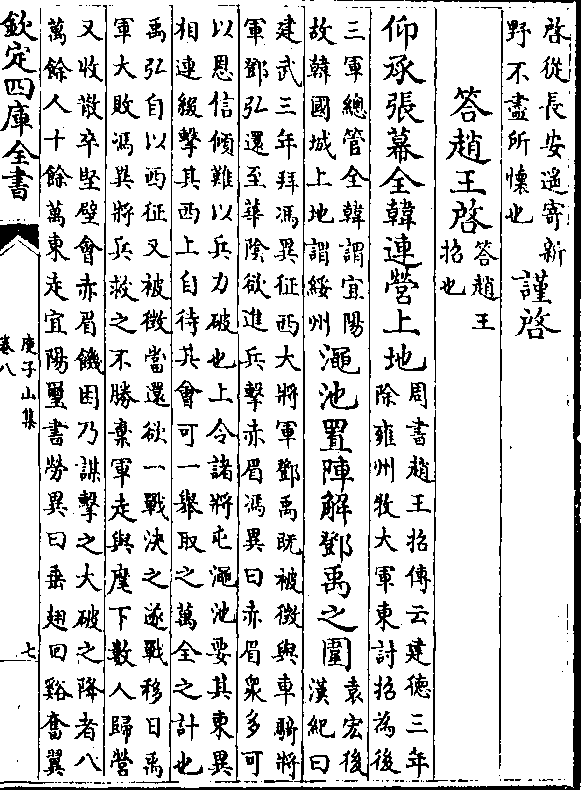 啓從長安遥寄新
野不盡所懷也
謹啓
答趙王啓
答趙王
招也
仰承張幕全韓連營上地
周書趙王招傳云建德三年
除雍州牧大軍東討招為後
三軍總管全韓謂宜陽
故韓國城上地謂綏州
澠池置陣解鄧禹之圍
袁宏後
漢紀曰
建武三年拜馮異征西大將軍鄧禹既被徵與車騎將
軍鄧弘還至華陰欲進兵擊赤眉馮異曰赤眉衆多可
以恩信傾難以兵力破也上令諸將屯澠池要其東異
相連綴擊其西上自待其會可一舉取之萬全之計也
禹弘自以西征又被徵當還欲一戰決之遂戰移日禹
軍大敗馮異將兵救之不勝棄軍走與麾下數人歸營
又收散卒堅壁會赤眉饑困乃謀擊之大破之降者八
萬餘人十餘萬東走宜陽璽書勞異曰垂翅回谿奮翼
欽定四庫全書
庾子山集
卷八
七